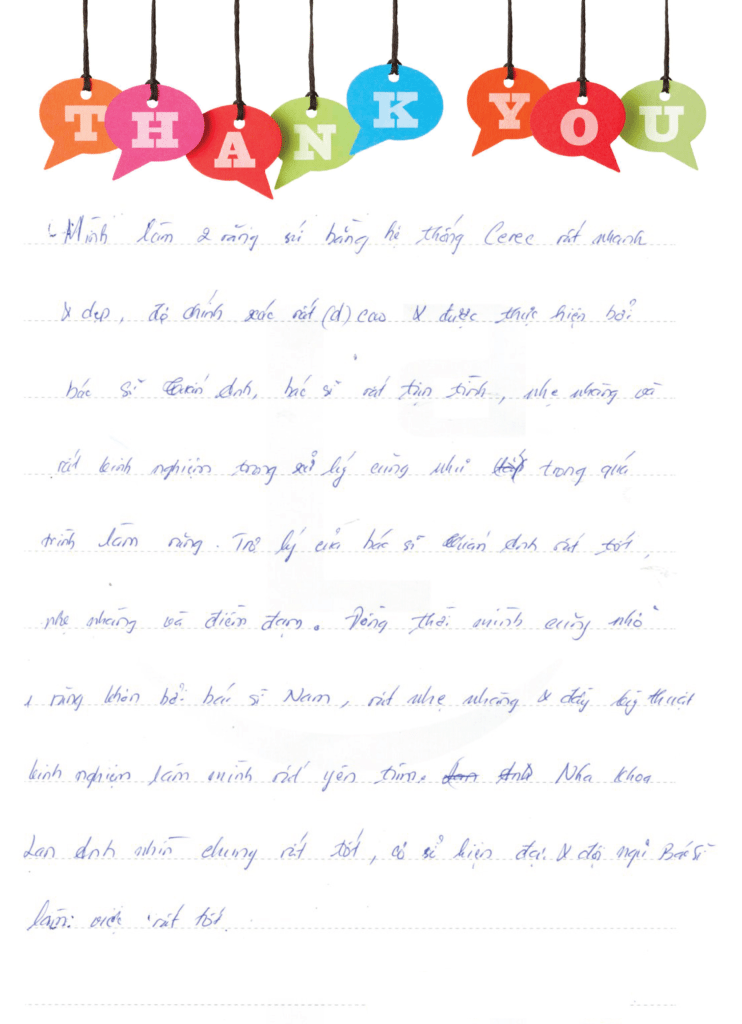 THANK YOU
Mình làm 2 răng sứ bằng hệ thống Cerec rất nhanh
& đẹp, độ chính xác rất (d) cao & được thực hiện bởi
bác sĩ Tuấn Anh, bác sĩ rất tận tình, nhẹ nhàng và
rất kinh nghiệm trong xử lý cũng như trong quá
trình làm răng. Trợ lý của bác sĩ Tuấn Anh rất tốt,
nhẹ nhàng và điềm đạm. Đồng thời mình cũng nhổ
1 răng khôn bởi bác sĩ Nam, rất nhẹ nhàng & đầy kỹ thuật
kinh nghiệm làm mình rất yên tâm. Nha khoa
Lan Anh nhìn chung rất tốt, cơ sở hiện đại & đội ngũ Bác sĩ
làm việc rất tốt.